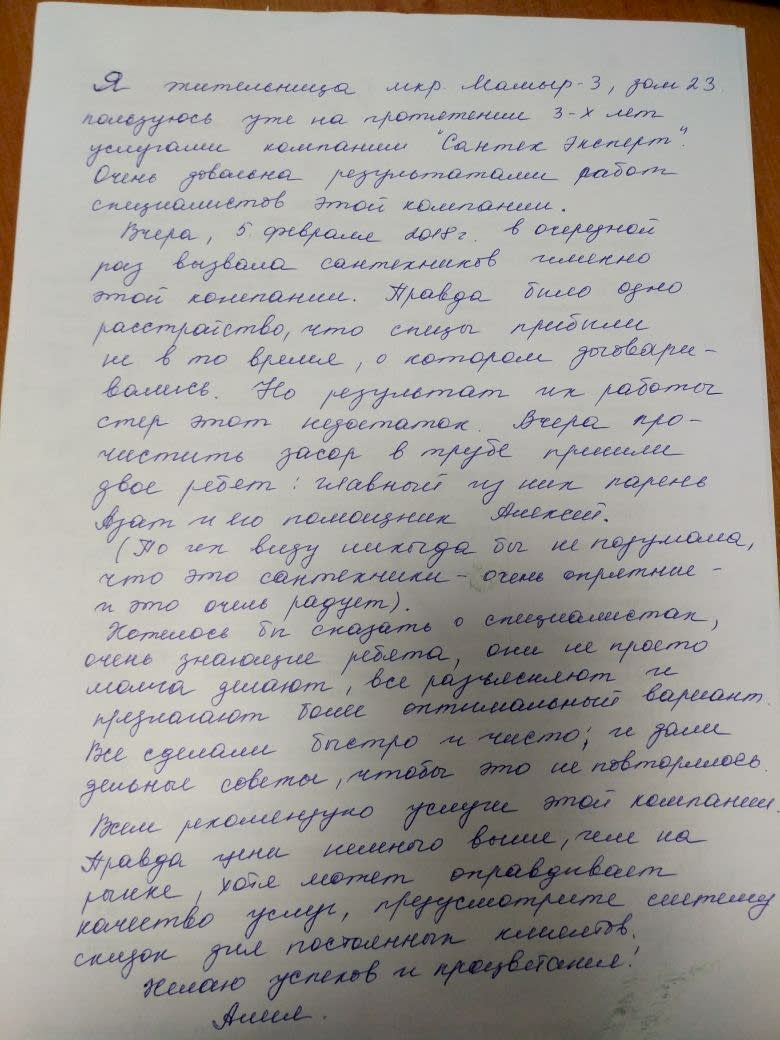 Я жительница мкр. Мамыр-3, дом 23
пользуюсь уже на протяжении 3-х лет
услугами компании "Сантек Эксперт".
Очень довольна результатами работ
специалистов этой компании.
Вчера, 5 февраля 2018г. в очередной
раз вызвала сантехников именно
этой компании. Правда было одно
расстройство, что спецы прибыли
не в то время, о котором договари-
вались. Но результат их работы
стер этот недостаток. Вчера про-
чистить засор в трубе пришли
двое ребят: главный из них парень
Азат и его помощник Алексей.
(По их виду никогда бы не подумала,
что это сантехники - очень опрятные -
и это очень радует).
Хотелось бы сказать о специалистах,
очень знающие ребята, они не просто
молча делают, все разъясняют и
предлагают более оптимальный вариант.
Все сделали быстро и чисто; и дали
дельные советы, чтобы это не повторялось.
Всем рекомендую услуги этой компании.
Правда цены немного выше, чем на
рынке, хотя может оправдывает
качество услуг, предусмотрите систему
скидок для постоянных клиентов.
Желаю успехов и процветания!